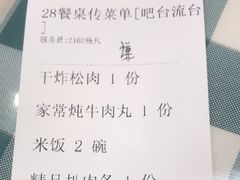 28餐桌传菜单[吧台流台
]
服务员:2162杨凡
干炸松肉 1 份
家常炖牛肉丸 1 份
米饭 2 碗
精品扒肉条 1 份